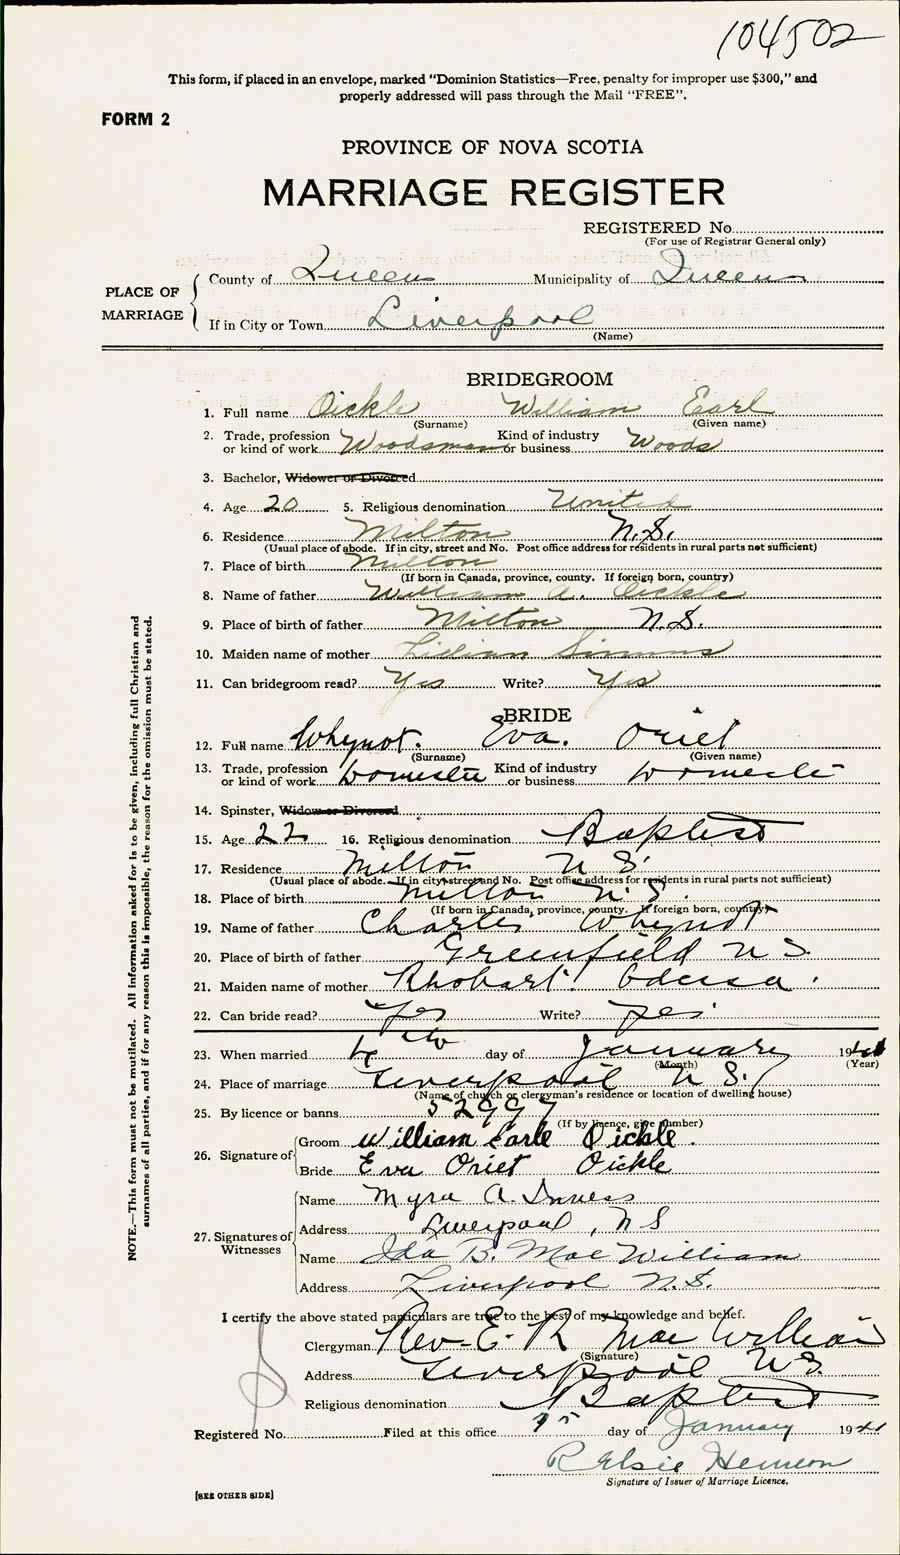 104502
This form, if placed in an envelope, marked "Dominion Statistics—Free, penalty for improper use $300," and
properly addressed will pass through the Mail "FREE".
FORM 2
PROVINCE OF NOVA SCOTIA
MARRIAGE REGISTER
REGISTERED No.
(For use of Registrar General only)
PLACE OF MARRIAGE
County of Queens Municipality of Queens
If in City or Town Liverpool
(Name)
BRIDEGROOM
1. Full name Oickle William Earl
(Surname) (Given name)
2. Trade, profession or kind of work Woodsman Kind of industry or business Woods
3. Bachelor, Widower or Divorced
4. Age 20 5. Religious denomination United
6. Residence Milton N.S.
(Usual place of abode. If in city, street and No. Post office address for residents in rural parts not sufficient)
7. Place of birth Milton
(If born in Canada, province, county. If foreign born, country)
8. Name of father William A. Oickle
9. Place of birth of father Milton N.S.
10. Maiden name of mother Lilian Simms
11. Can bridegroom read? Yes Write? Yes
BRIDE
12. Full name Whynot. Eva. Oriet
(Surname) (Given name)
13. Trade, profession or kind of work Domestic Kind of industry or business Domestic
14. Spinster, Widow or Divorced
15. Age 22 16. Religious denomination Baptist
17. Residence Milton N S.
(Usual place of abode. If in city street and No. Post office address for residents in rural parts not sufficient)
18. Place of birth Milton N. S.
(If born in Canada, province, county. If foreign born, country)
19. Name of father Charles Whynot
20. Place of birth of father Greenfield N S.
21. Maiden name of mother Rhobart Odessa.
22. Can bride read? Yes Write? Yes
23. When married day of January 1941
(Month) (Year)
24. Place of marriage Liverpool N S.
(Name of church or clergyman's residence or location of dwelling house)
25. By licence or banns 52997
(If by licence, give number)
26. Signature of
Groom William Earle Oickle.
Bride Eva Oriet Oickle
27. Signatures of Witnesses
Name Myra A. Inness
Address Liverpool, N S
Name Ida B. MacWilliam
Address Liverpool N.S.
I certify the above stated particulars are true to the best of my knowledge and belief.
Clergyman Rev. E. R. MacWilliam
(Signature)
Address Liverpool N S.
Religious denomination Baptist
Registered No. Filed at this office day of January 1941
Elsie Hemeon
Signature of Issuer of Marriage Licence.
[SEE OTHER SIDE]
NOTE.—This form must not be mutilated. All information asked for is to be given, including full Christian and
surnames of all parties, and if for any reason this is impossible, the reason for the omission must be stated.